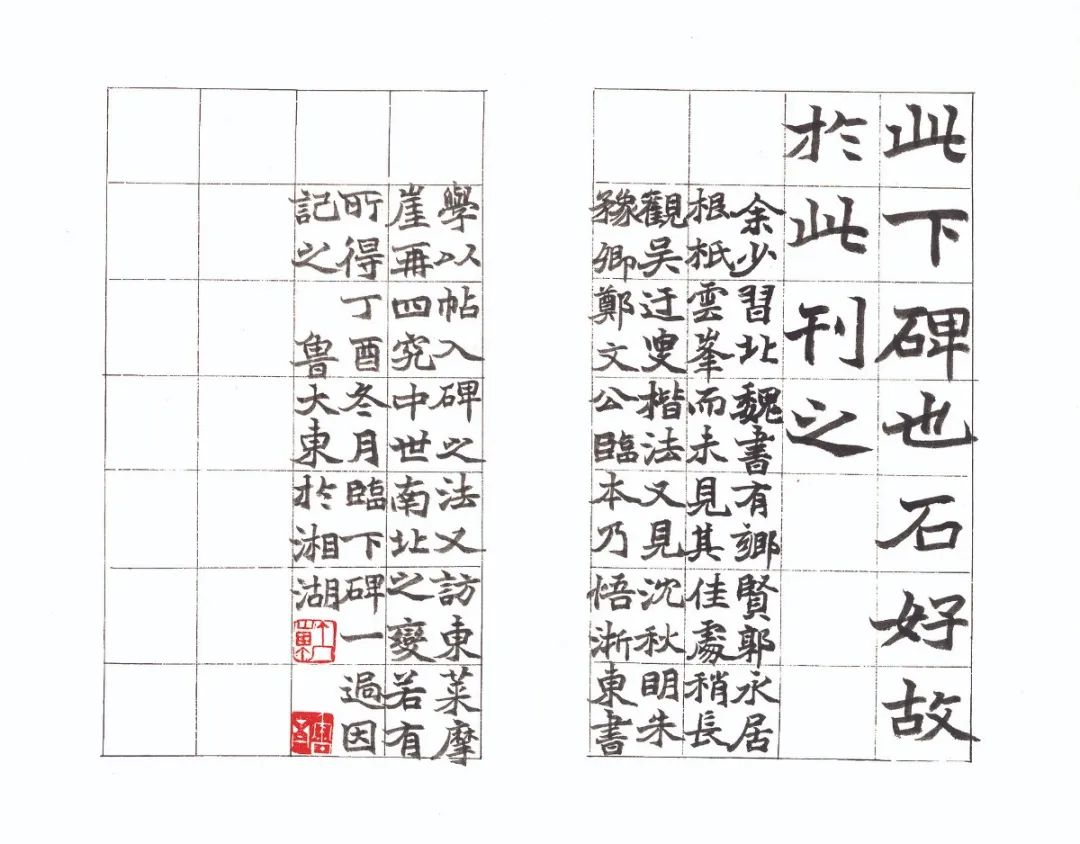 此下碑也石好故
於此刊之
余少習北魏書有鄉賢郭永居
根柢雲峯而未見其佳處稍長
觀吴迂叟楷法又見沈秋明朱
豫卿鄭文公臨本乃悟浙東書
學以帖入碑之法又訪東萊摩
崖再四究中世南北之變若有
所得丁酉冬月臨下碑一過因
記之 魯大東於湘湖